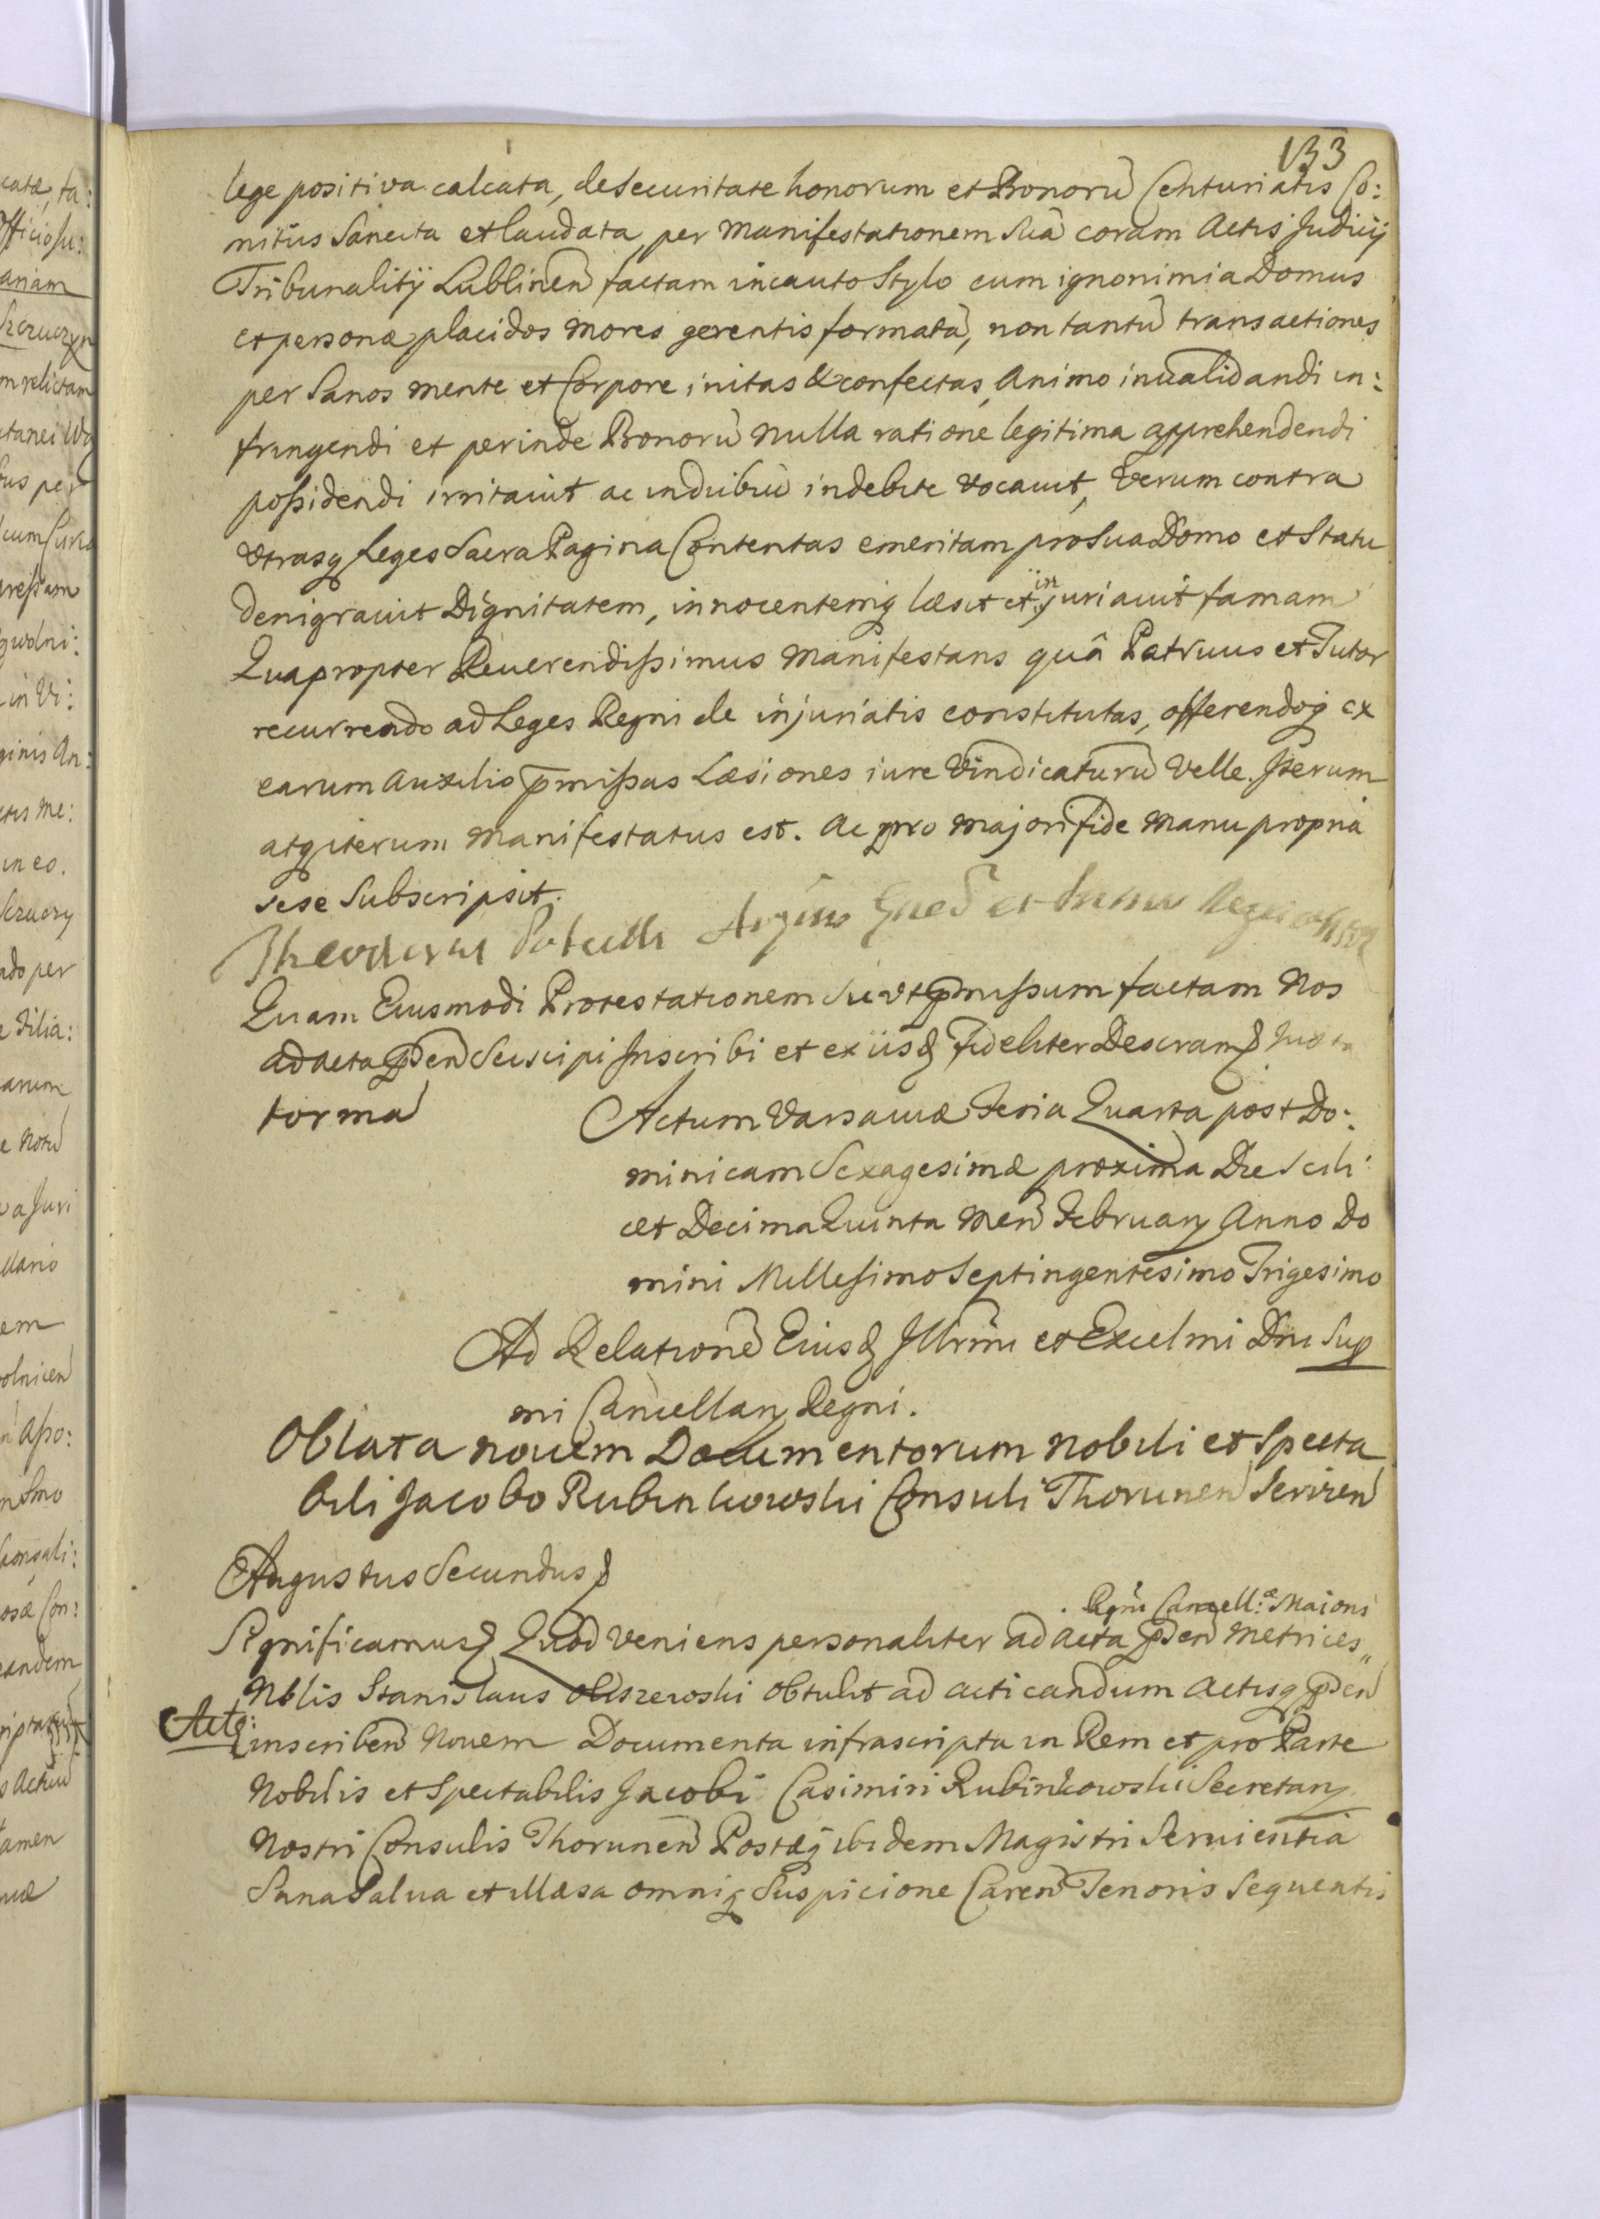 133
lege positiva calcata, de Securitate honorum et Bonorũ Centuriatis Co:
mitiis Sancita et laudata, per Manifestationem Suã coram Actis Judicij
Tribunalitij Lublinen̄ factam incauto Stylo cum ignonimia Domus
et personæ placidos Mores gerentis formatã, non tantũ transactiones
per Sanos mente et Corpore initas & confectas, Animo invalidandi in:
fringendi et perinde Bonorũ nulla ratione legitima apprehendendi
possidendi irritavit ac in dubiũ indebite vocavit, Verum contra
utrasq Leges Sacra Pagina Contentas emeritam pro Sua Domo et Statu
denigravit Dignitatem, innocentemq læsit et in juriavit famam
Quapropter Reverendissimus Manifestans quâ Patruus et Tutor
recurrendo ad Leges Regni de injuriatis constitutas, offerendoq ex
earum Auxilio p̄missas Læsiones iure Vindicaturũ Velle. Iterum
atq iterum Manifestatus est. Ac pro Majori fide Manu propria
sese Subscripsit.
Theodorus Potocki
Quam Eiusmodi Protestationem Sic ut p̄missum factam Nos
ad acta p̄den̄ Suscipi Inscribi et ex iisd fideliter Descram Juxta
forma
Actum Varsaviæ Feria Quarta post Do:
minicam Sexagesimæ proxima Die Scili:
cet Decima Quinta Men̄ February Anno Do
mini Millesimo Septingentesimo Trigesimo
Ad Relationẽ Eiusd Illrm̄i et Excelmi Dn̄i Sup
mi Cancellary Regni.
Oblata novem Documentorum Nobili et Specta
bili Jacobo Rubinkowski Consuli Thorunen̄ Servien̄
Augustus Secundus
Regni Cancell:æ Maioris
Significamus Quod Veniens personaliter ad Acta p̄den̄ Metrices
Nblis Stanislaus Oliszewski obtulit ad acticandum Actisq p̄den̄
Actq: inscriben̄ Novem Documenta infrascripta in Rem et pro Parte
Nobilis et Spectabilis Jacobi Casimiri Rubinkowski Secretary
Nostri Consulis Thorunen̄ Postæq ibidem Magistri Servientia
Sana Salva et illæsa omniq Suspicione Caren̄ Tenoris Sequentis